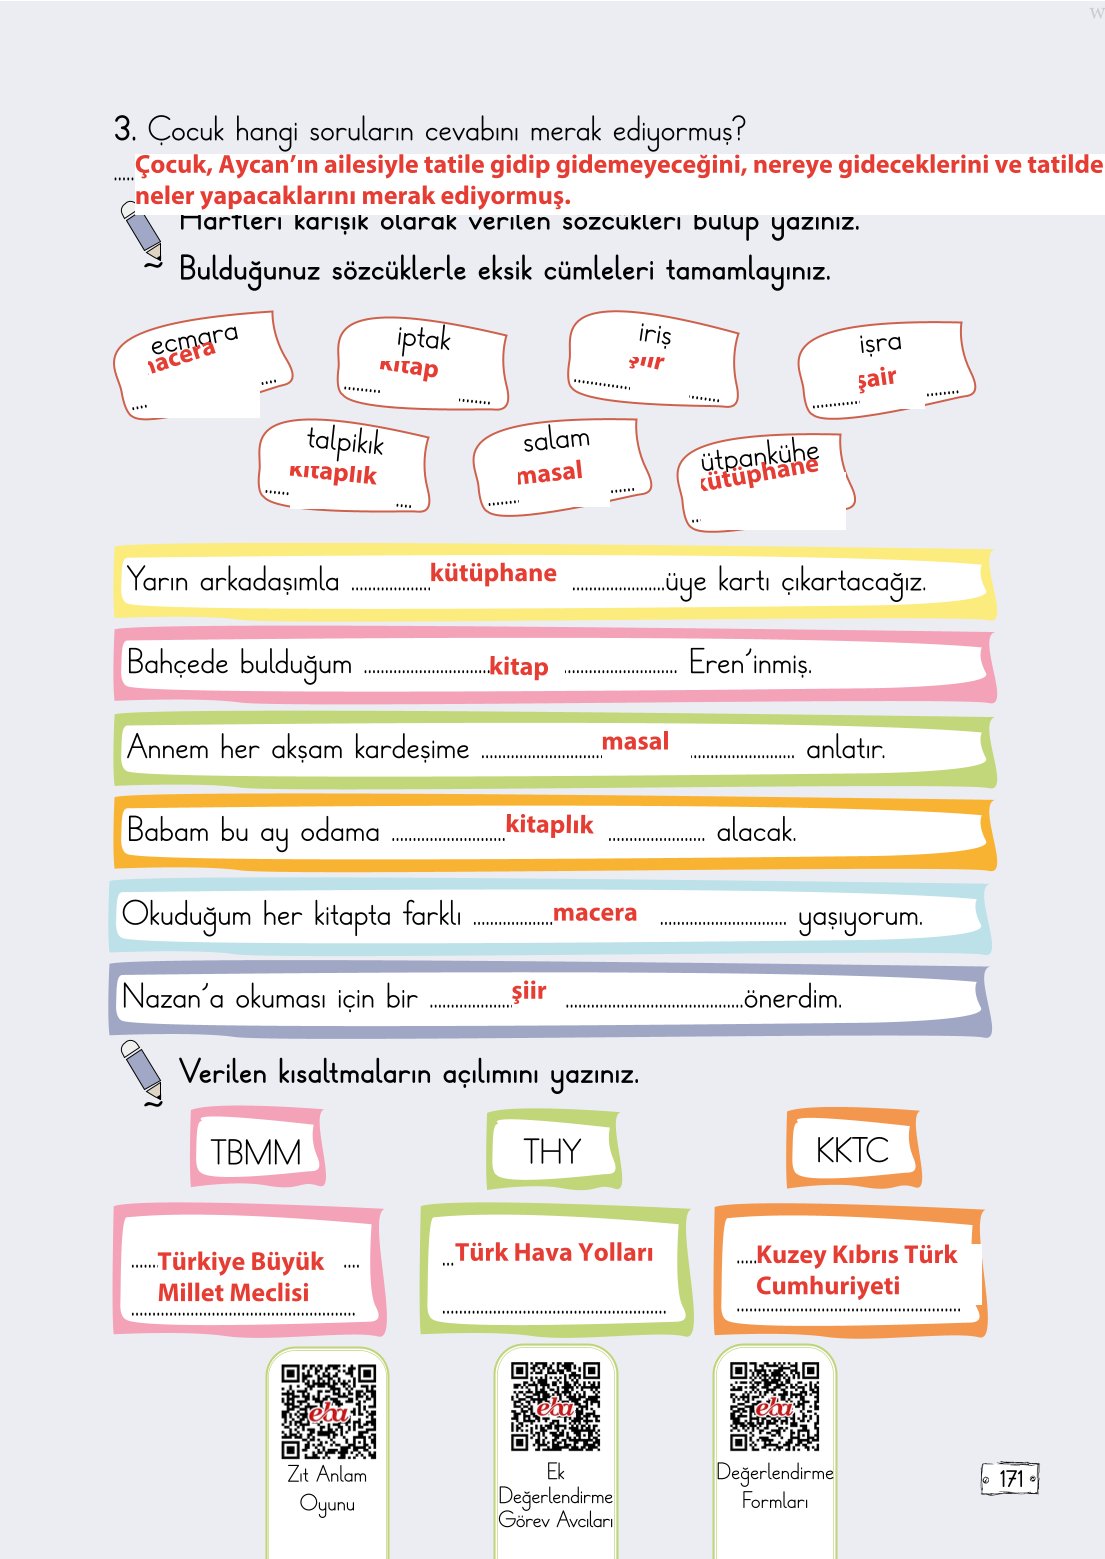 W
3. Çocuk hangi soruların cevabını merak ediyormuş?
Çocuk, Aycan’ın ailesiyle tatile gidip gidemeyeceğini, nereye gideceklerini ve tatilde
neler yapacaklarını merak ediyormuş.
Harfleri karışık olarak verilen sözcükleri bulup yazınız.
Bulduğunuz sözcüklerle eksik cümleleri tamamlayınız.
ecmara
macera
iptak
kitap
iriş
şiir
işra
şair
talpikık
kitaplık
salam
masal
ütpankühe
kütüphane
Yarın arkadaşımla ........ kütüphane ........ üye kartı çıkartacağız.
Bahçede bulduğum ........ kitap ........ Eren’inmiş.
Annem her akşam kardeşime ........ masal ........ anlatır.
Babam bu ay odama ........ kitaplık ........ alacak.
Okuduğum her kitapta farklı ........ macera ........ yaşıyorum.
Nazan’a okuması için bir ........ şiir ........ önerdim.
Verilen kısaltmaların açılımını yazınız.
TBMM
THY
KKTC
Türkiye Büyük
Millet Meclisi
Türk Hava Yolları
Kuzey Kıbrıs Türk
Cumhuriyeti
eba
eba
eba
Zıt Anlam
Oyunu
Ek
Değerlendirme
Görev Avcıları
Değerlendirme
Formları
171